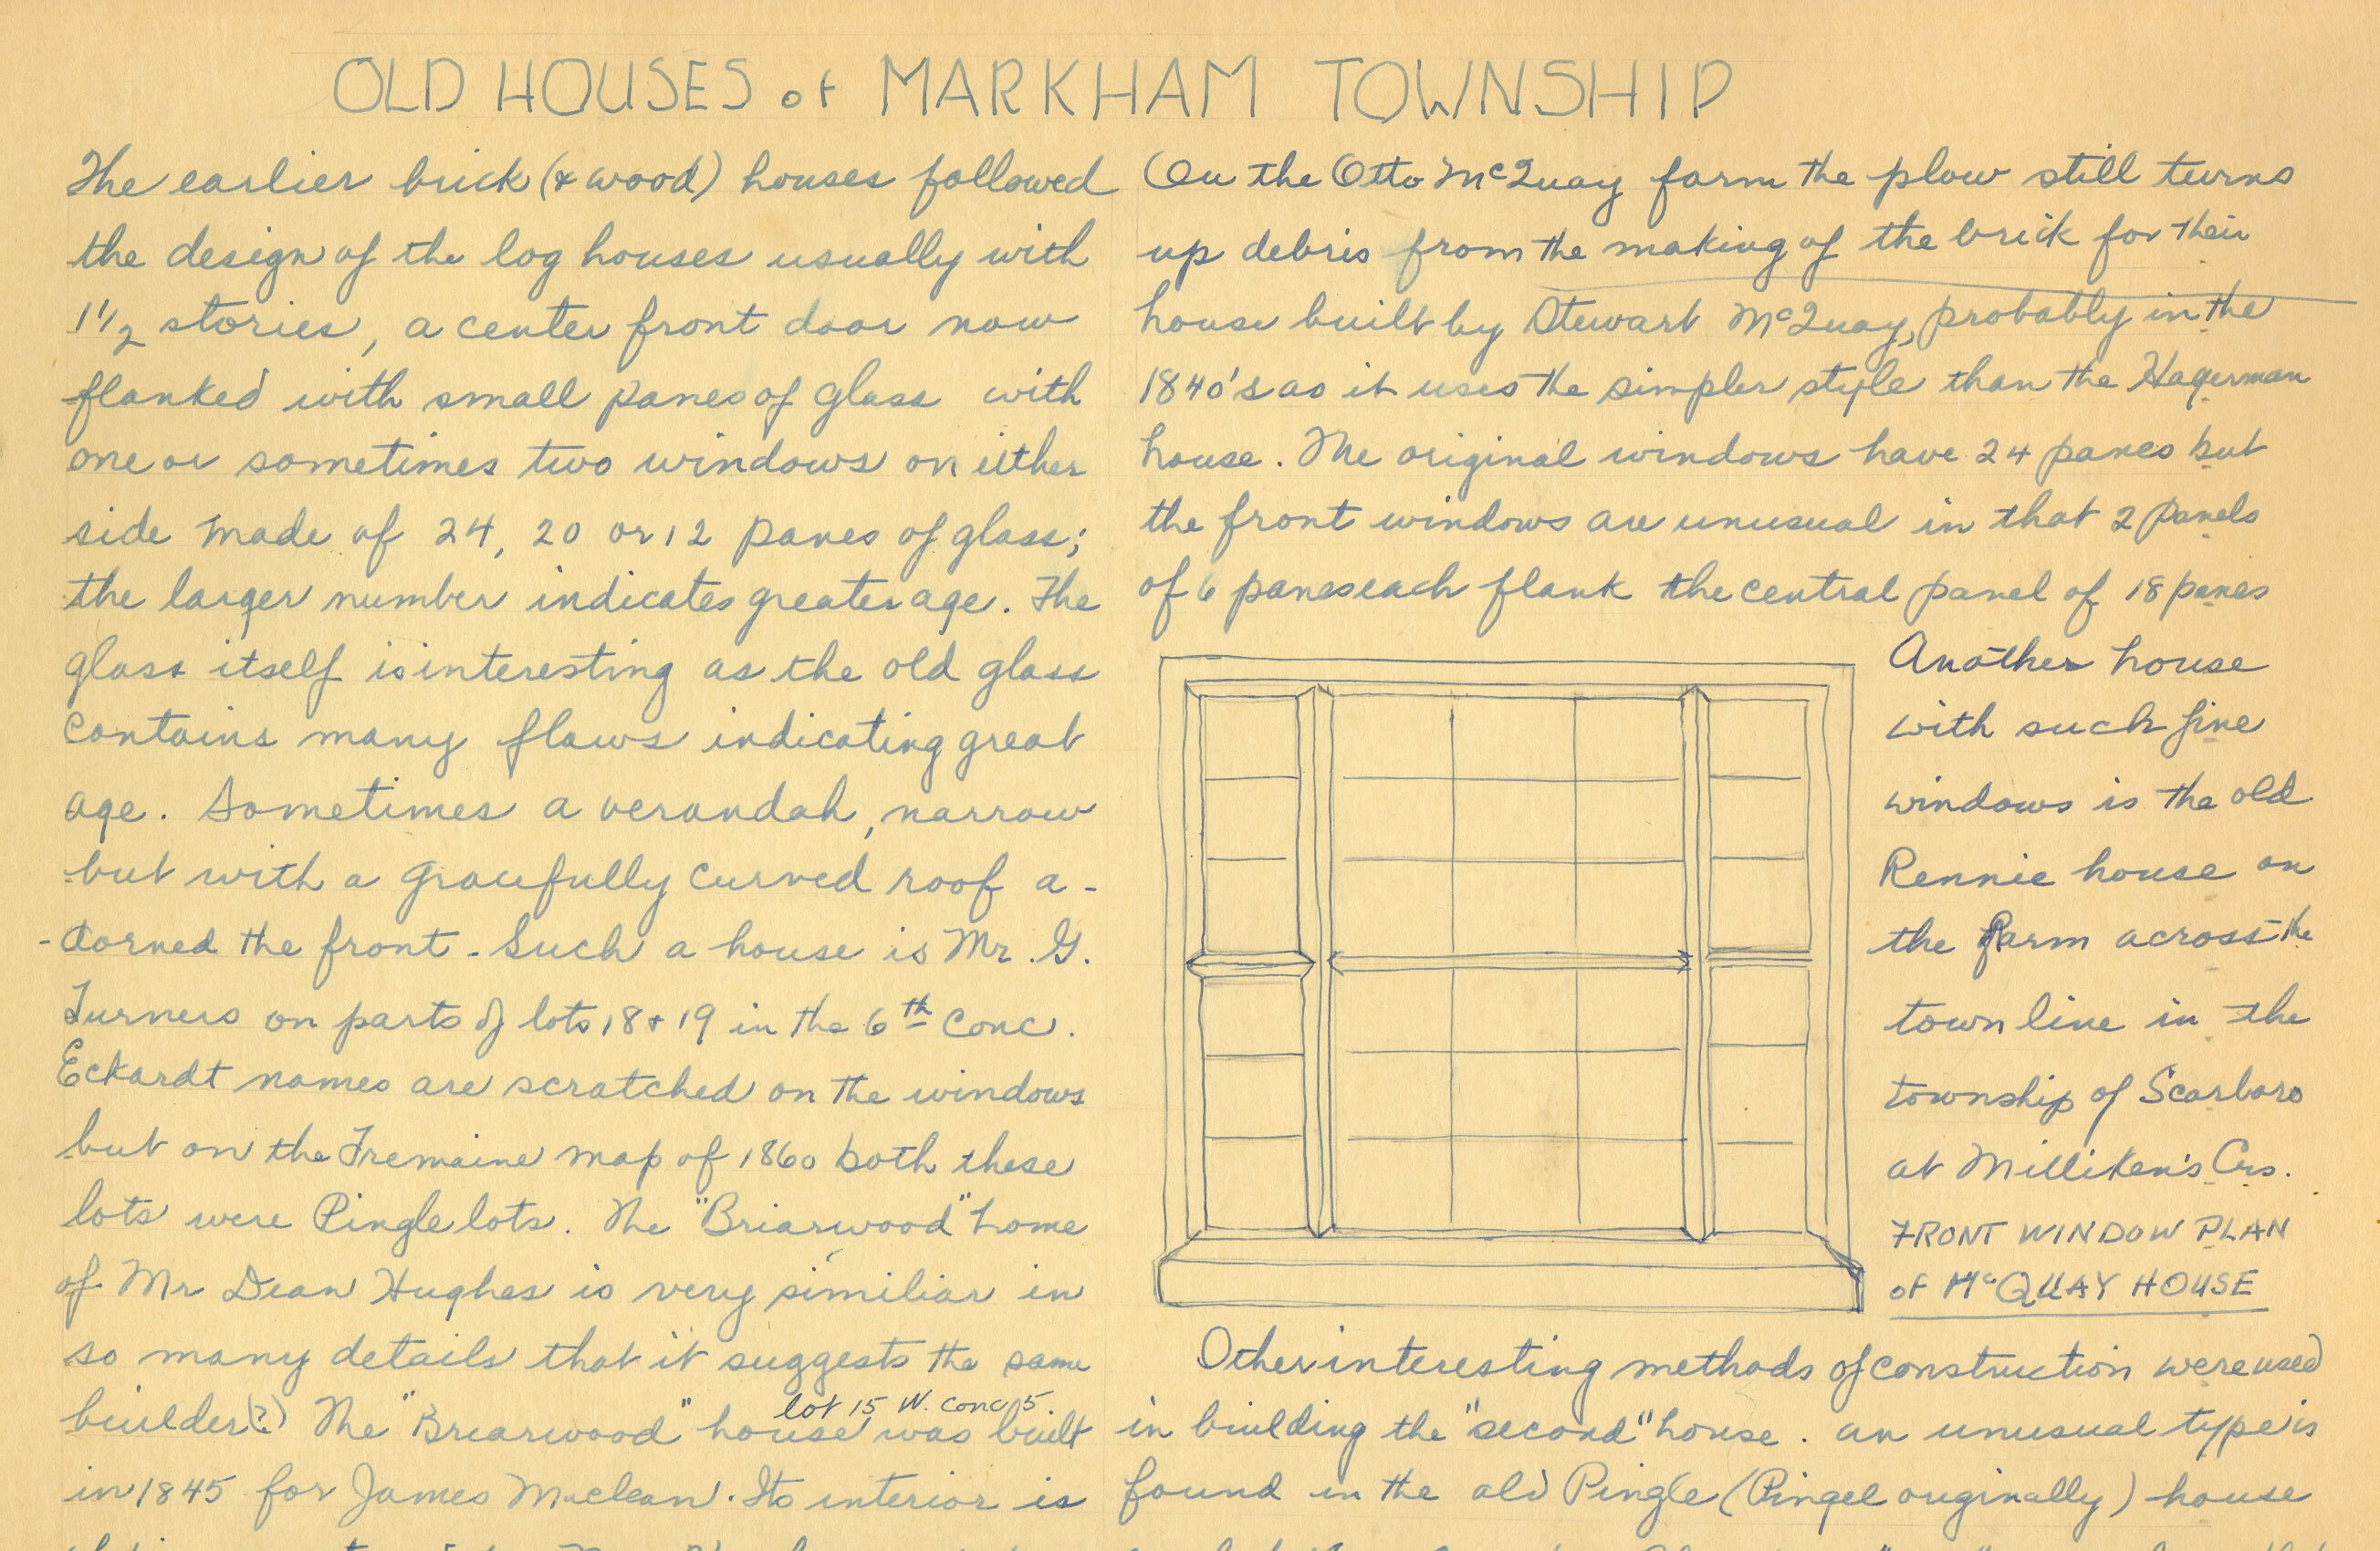 OLD HOUSES of MARKHAM TOWNSHIP
The earlier brick (& wood) houses followed
the design of the log houses usually with
1 1/2 stories, a center front door now
flanked with small panes of glass with
one or sometimes two windows on either
side made of 24, 20 or 12 panes of glass;
the larger number indicates greater age. The
glass itself is interesting as the old glass
contains many flaws indicating great
age. Sometimes a verandah, narrow
but with a gracefully curved roof a-
-dorned the front - Such a house is Mr. G.
Turners on parts of lots 18 & 19 in the 6th conc.
Eckardt names are scratched on the windows
but on the Tremaine map of 1860 both these
lots were Pingle lots. The "Briarwood" home
of Mr Dean Hughes is very similiar in
so many details that it suggests the same
builder(?) The "Briarwood" house was built
lot 15 W. conc 5
in 1845 for James Maclean. Its interior is
On the Otto McQuay farm the plow still turns
up debris from the making of the brick for their
house built by Stewart McQuay, probably in the
1840's as it uses the simpler style than the Hagerman
house. The original windows have 24 panes but
the front windows are unusual in that 2 panels
of 6 panes each flank the central panel of 18 panes
Another house
with such fine
windows is the old
Rennie house on
the farm across the
town line in the
township of Scarboro
at Milliken's Crs.
FRONT WINDOW PLAN
of McQUAY HOUSE
Other interesting methods of construction were used
in building the "second" house. an unusual type is
found in the old Pingle (Pingel originally) house